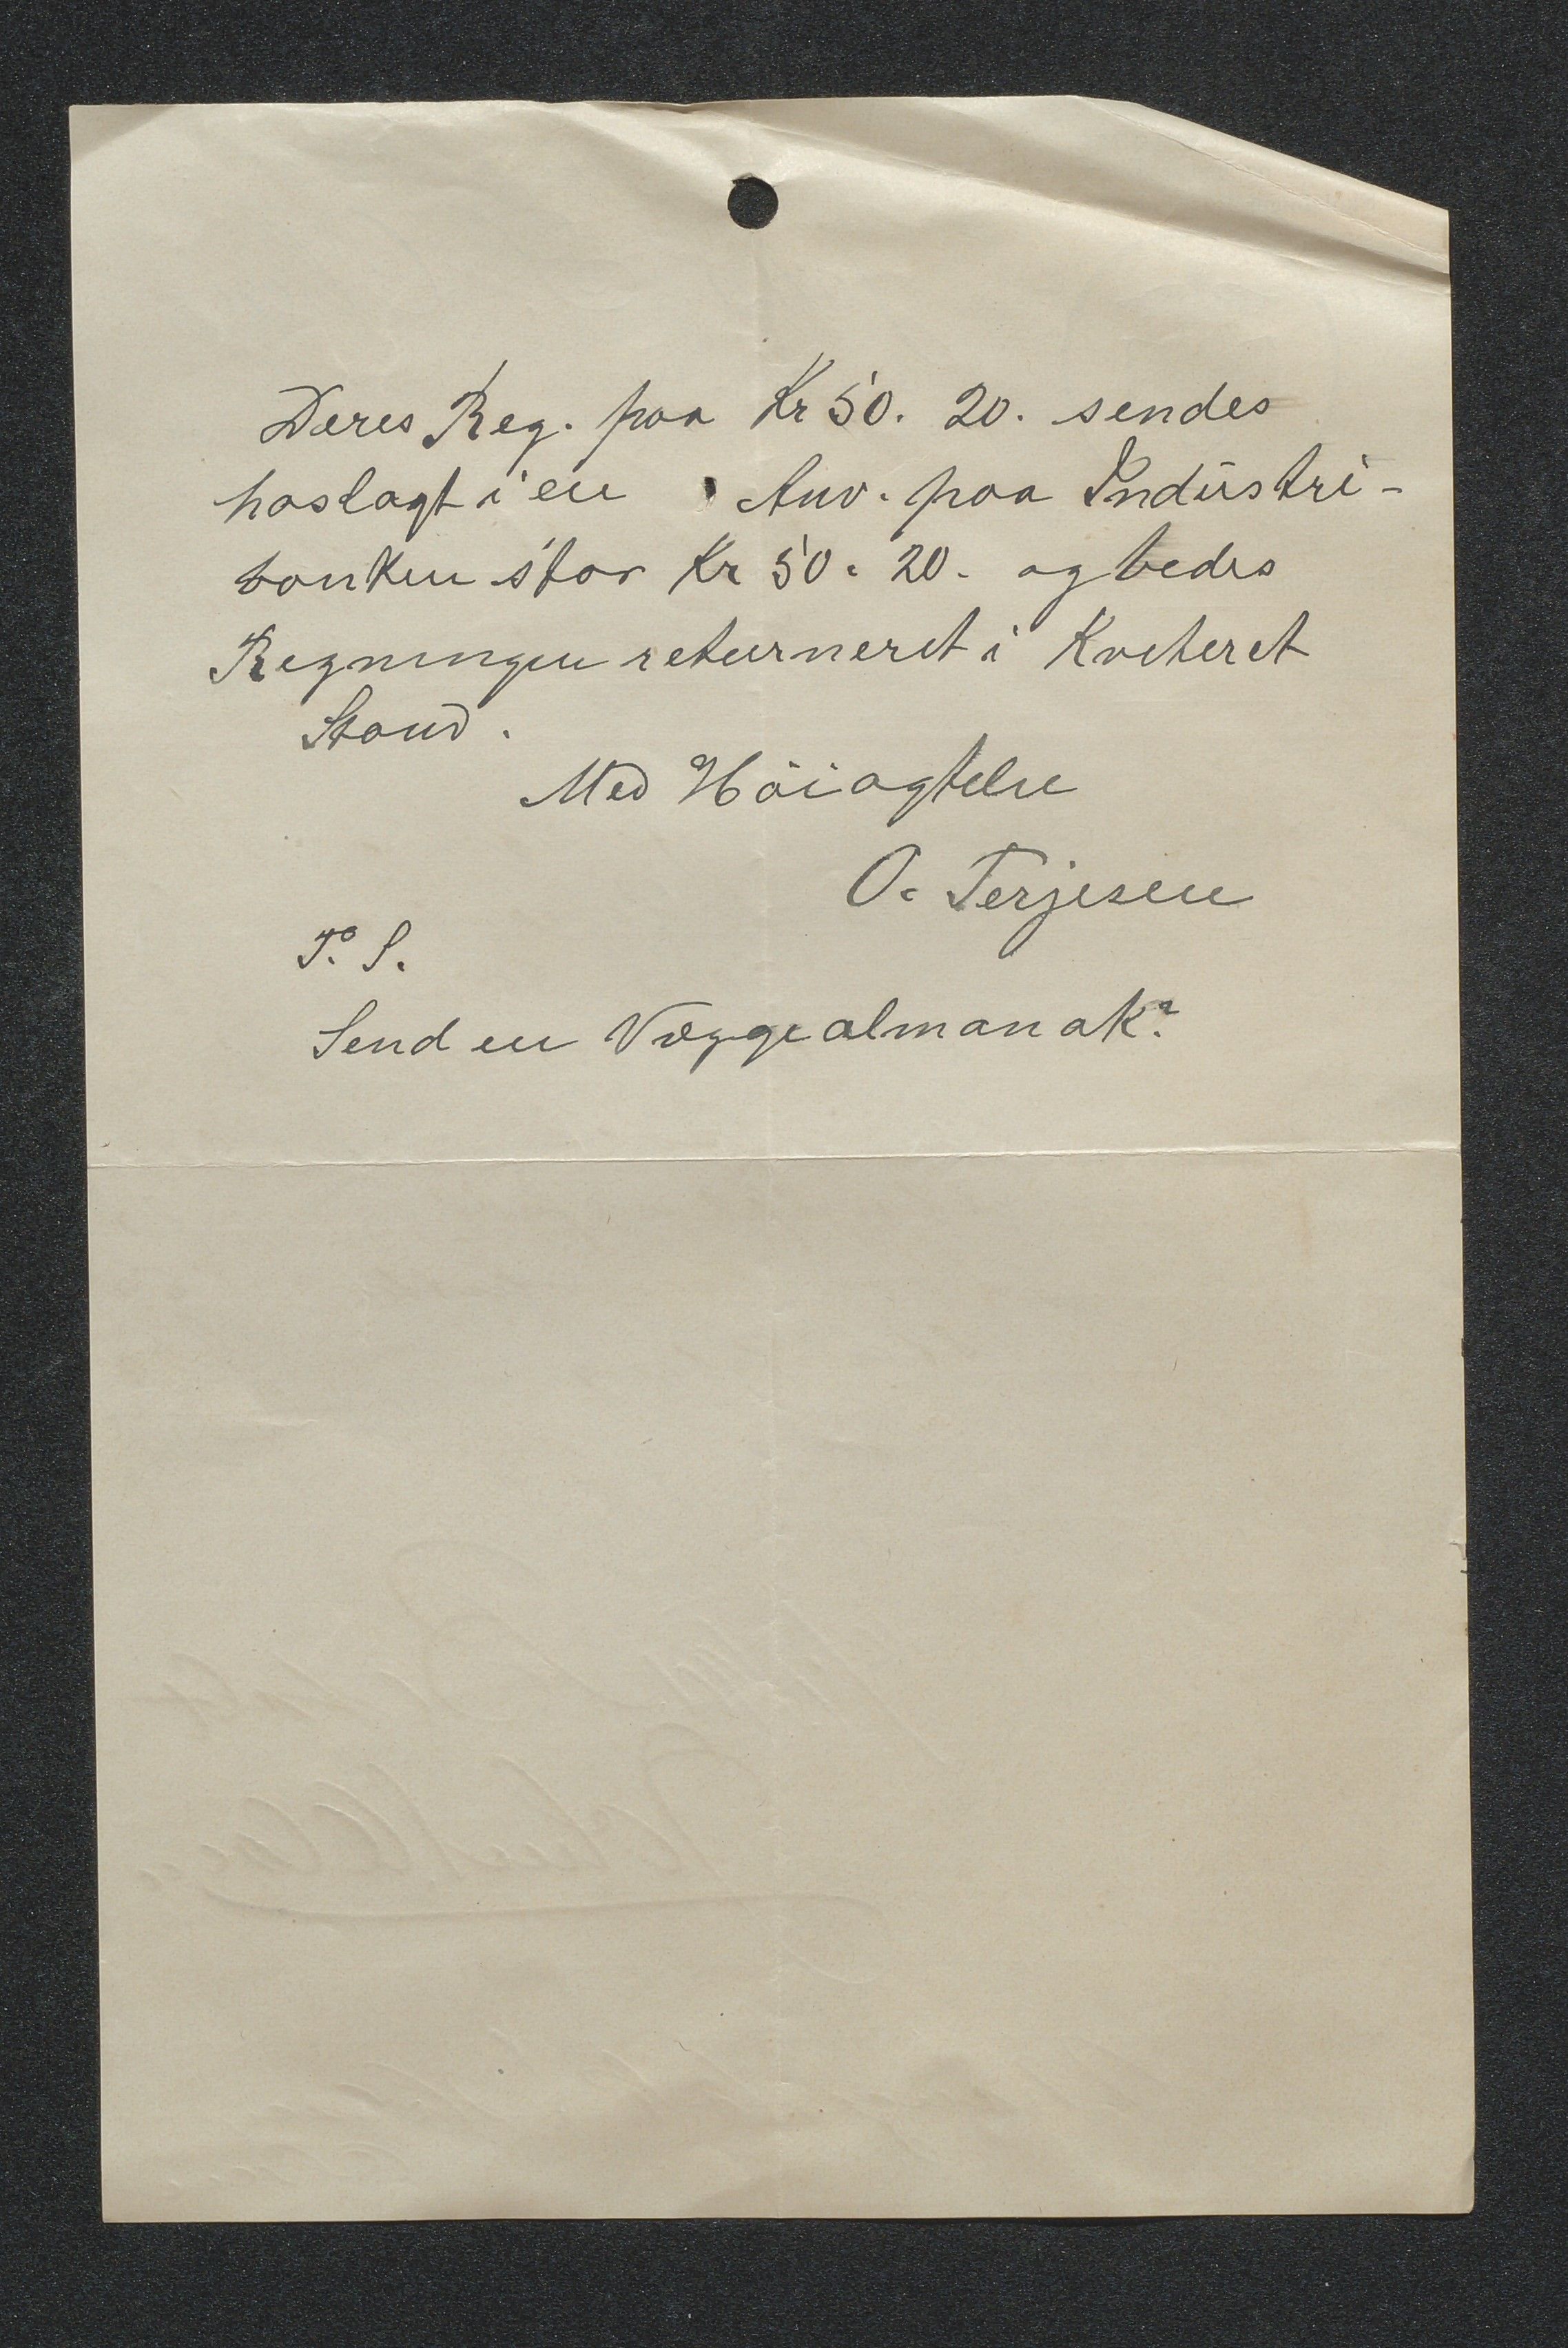 Deres Reg. paa Kr 50. 20. sendes
hoslagt i en Anv. paa Industri-
banken stor Kr 50. 20. og bedes
Regningen returneret i Kviteret
Stand.
Med Höiagtelse
O. Terjesen
P. S.
Send en Væggealmanak?